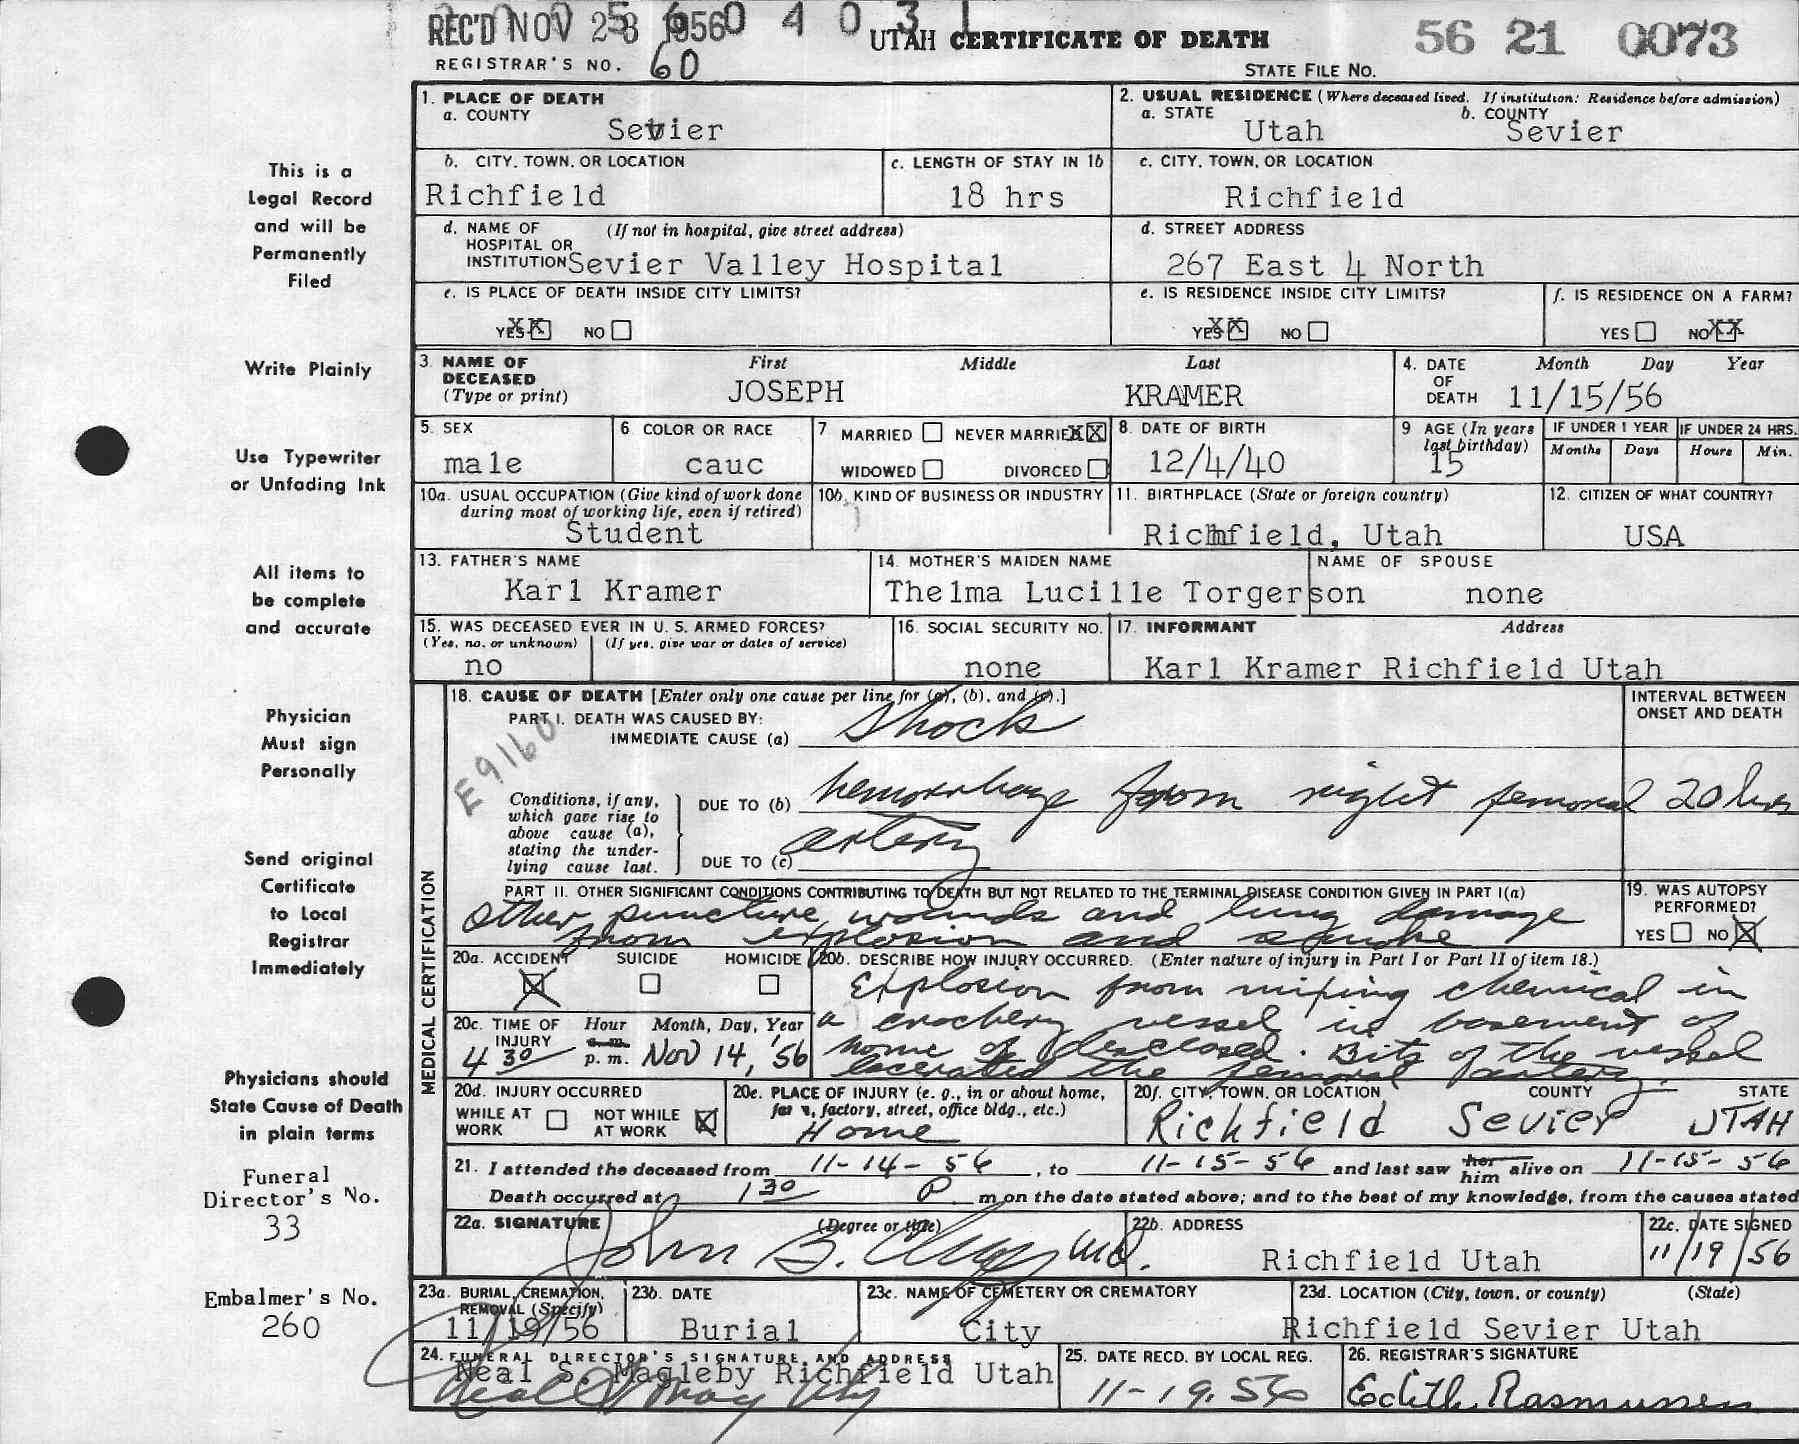 REC'D NOV 23 1956 0 4 0 3 1
UTAH CERTIFICATE OF DEATH
56 21 0073
REGISTRAR'S NO. 60
STATE FILE NO.
1. PLACE OF DEATH
a. COUNTY
Sevier
2. USUAL RESIDENCE (Where deceased lived. If institution: Residence before admission)
a. STATE b. COUNTY
Utah Sevier
b. CITY, TOWN, OR LOCATION
Richfield
c. LENGTH OF STAY IN 1b
18 hrs
c. CITY, TOWN, OR LOCATION
Richfield
d. NAME OF (If not in hospital, give street address)
HOSPITAL OR
INSTITUTION Sevier Valley Hospital
d. STREET ADDRESS
267 East 4 North
e. IS PLACE OF DEATH INSIDE CITY LIMITS?
YES XX NO
e. IS RESIDENCE INSIDE CITY LIMITS?
YES XX NO
f. IS RESIDENCE ON A FARM?
YES NO XX
3. NAME OF DECEASED (Type or print)
First Middle Last
JOSEPH KRAMER
4. DATE OF DEATH
Month Day Year
11/15/56
5. SEX
male
6 COLOR OR RACE
cauc
7 MARRIED NEVER MARRIED XX
WIDOWED DIVORCED
8. DATE OF BIRTH
12/4/40
9 AGE (In years last birthday)
15
IF UNDER 1 YEAR
Months Days
IF UNDER 24 HRS.
Hours Min.
10a. USUAL OCCUPATION (Give kind of work done
during most of working life, even if retired)
Student
10b. KIND OF BUSINESS OR INDUSTRY
11. BIRTHPLACE (State or foreign country)
Richfield, Utah
12. CITIZEN OF WHAT COUNTRY?
USA
13. FATHER'S NAME
Karl Kramer
14. MOTHER'S MAIDEN NAME
Thelma Lucille Torgerson
NAME OF SPOUSE
none
15. WAS DECEASED EVER IN U. S. ARMED FORCES?
(Yes, no, or unknown) (If yes, give war or dates of service)
no
16. SOCIAL SECURITY NO.
none
17. INFORMANT Address
Karl Kramer Richfield Utah
MEDICAL CERTIFICATION
18. CAUSE OF DEATH [Enter only one cause per line for (a), (b), and (c).]
PART I. DEATH WAS CAUSED BY:
IMMEDIATE CAUSE (a) Shock
E9160
INTERVAL BETWEEN
ONSET AND DEATH
Conditions, if any,
which gave rise to
above cause (a),
stating the under-
lying cause last.
DUE TO (b) hemorrhage from right femoral 20 hrs
artery
DUE TO (c)
PART II. OTHER SIGNIFICANT CONDITIONS CONTRIBUTING TO DEATH BUT NOT RELATED TO THE TERMINAL DISEASE CONDITION GIVEN IN PART I(a)
Other puncture wounds and lung damage
from explosion and smoke
19. WAS AUTOPSY
PERFORMED?
YES NO X
20a. ACCIDENT SUICIDE HOMICIDE
X
20b. DESCRIBE HOW INJURY OCCURRED. (Enter nature of injury in Part I or Part II of item 18.)
Explosion from mixing chemical in
a crockery vessel in basement of
home of deceased. Bits of the vessel
lacerated the femoral artery.
20c. TIME OF INJURY
Hour Month, Day, Year
a. m.
p. m.
4 30 Nov 14, 56
20d. INJURY OCCURRED
WHILE AT WORK NOT WHILE AT WORK X
20e. PLACE OF INJURY (e. g., in or about home,
farm, factory, street, office bldg., etc.)
Home
20f. CITY, TOWN, OR LOCATION COUNTY STATE
Richfield Sevier UTAH
21. I attended the deceased from 11-14-56, to 11-15-56 and last saw her him alive on 11-15-56
Death occurred at 1 30 P m on the date stated above; and to the best of my knowledge, from the causes stated
22a. SIGNATURE (Degree or title)
John B. MD.
22b. ADDRESS
Richfield Utah
22c. DATE SIGNED
11/19/56
23a. BURIAL, CREMATION,
REMOVAL (Specify)
11/19/56
23b. DATE
Burial
23c. NAME OF CEMETERY OR CREMATORY
City
23d. LOCATION (City, town, or county) (State)
Richfield Sevier Utah
24. FUNERAL DIRECTOR'S SIGNATURE AND ADDRESS
Neal S. Magleby Richfield Utah
Neal S Magleby
25. DATE RECD. BY LOCAL REG.
11-19-56
26. REGISTRAR'S SIGNATURE
Edith Rasmussen
This is a
Legal Record
and will be
Permanently
Filed
Write Plainly
Use Typewriter
or Unfading Ink
All items to
be complete
and accurate
Physician
Must sign
Personally
Send original
Certificate
to Local
Registrar
Immediately
Physicians should
State Cause of Death
in plain terms
Funeral
Director's No.
33
Embalmer's No.
260